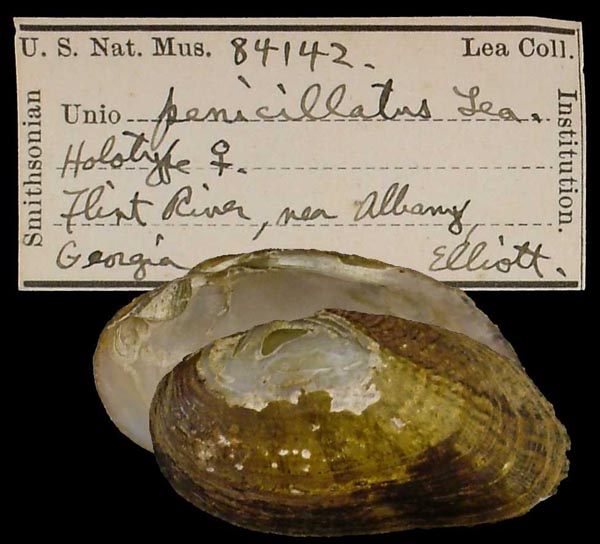 U. S. Nat. Mus. 84142. Lea Coll.
Smithsonian
Unio penicillatus Lea.
Holotype ♀.
Flint River, near Albany,
Georgia Elliott.
Institution.